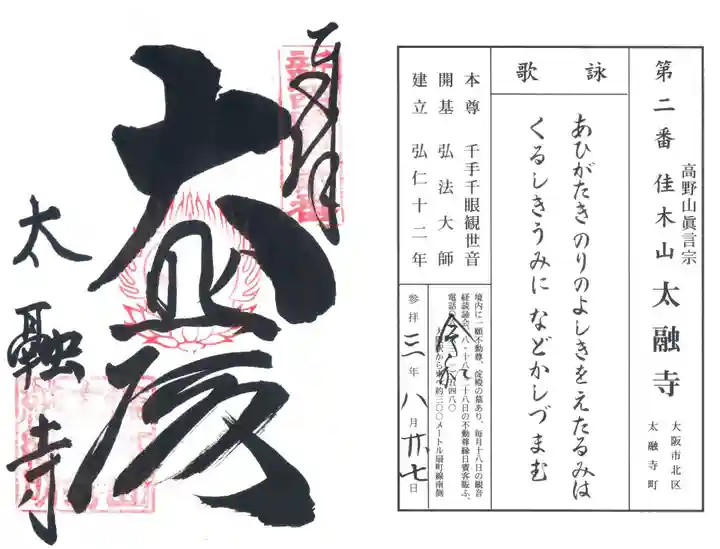 第二番 佳木山 太融寺
高野山眞言宗
大阪市北区
太融寺町
詠歌
あひがたき のりのよしきを えたるみは
くるしきうみに などかしづまむ
本尊 千手千眼観世音
開基 弘法大師
建立 弘仁十二年
境内に一願不動尊、淀殿の墓あり、毎月十八日の観音
経談論会、八・十八・二十八日の不動尊縁日賽客賑ふ、
大阪駅から東へ約三〇〇メートル扇町線南側
参拝 三年 八月 廿七日
奉拝
大悲殿
太融寺